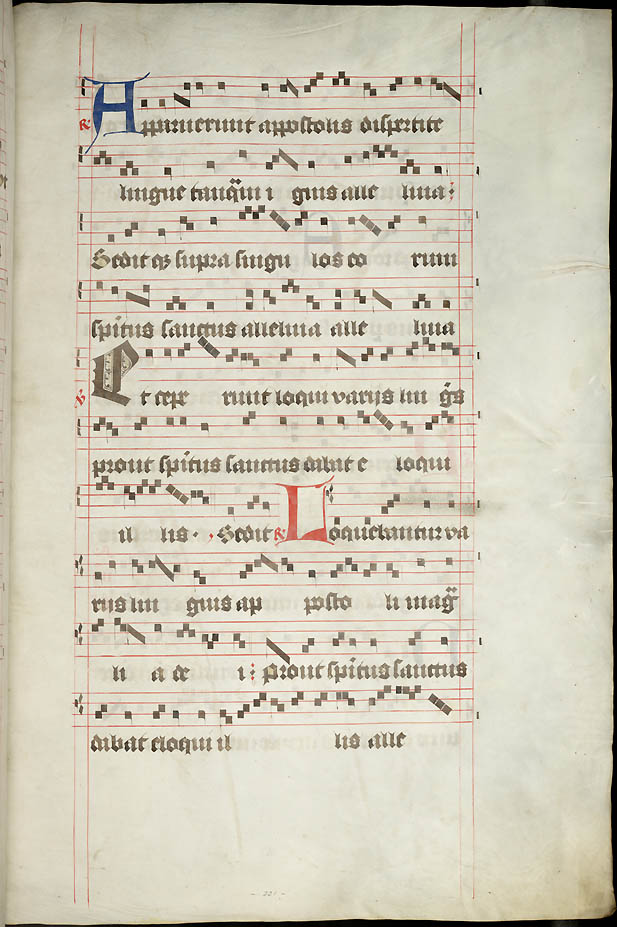 ℟ Apparuerunt appostolis dispertite
lingue tanq̃ui i gnis alle luia:
Sedit qꝫ supra singu los eo rum
spir̄tus sanctus alleluia alle luia
℣ Et cepe runt loqui varijs lin g̃s
prout spir̄tus sanctus dabat e loqui
il lis. Sedit ℟ Loquebantur va
rijs lin guis ap posto li mag̃
li a de i: prout spir̄tus sanctus
dabat eloqui il lis alle